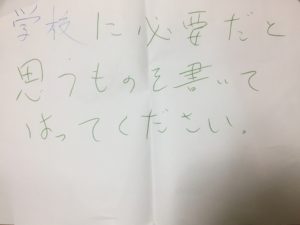 学校に必要だと
思うものを書いて
はってください。